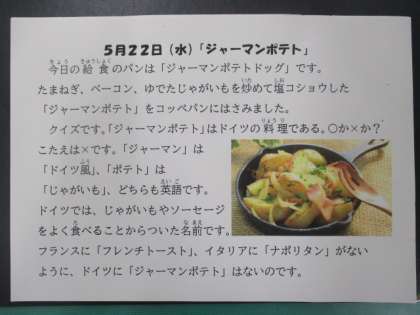 5月22日(水)「ジャーマンポテト」
今日の給食のパンは「ジャーマンポテトドッグ」です。
たまねぎ、ベーコン、ゆでたじゃがいもを炒めて塩コショウした
「ジャーマンポテト」をコッペパンにはさみました。
クイズです。「ジャーマンポテト」はドイツの料理である。○か×か?
こたえは×です。「ジャーマン」は
「ドイツ風」、「ポテト」は
「じゃがいも」、どちらも英語です。
ドイツでは、じゃがいもやソーセージ
をよく食べることからついた名前です。
フランスに「フレンチトースト」、イタリアに「ナポリタン」がない
ように、ドイツに「ジャーマンポテト」はないのです。